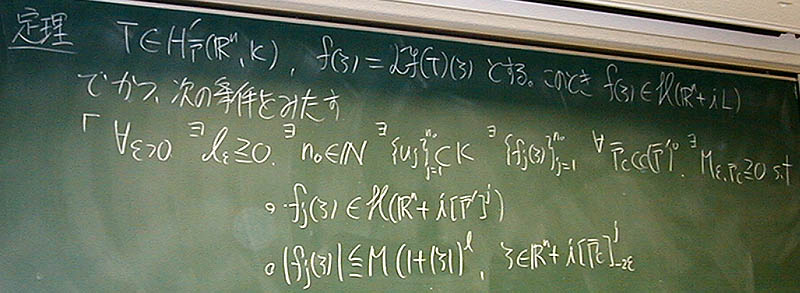 定理 T∈H'_Γ(ℝⁿ, K), f(ζ) = ℒf(T)(ζ) とする。このとき f(ζ)∈ℋ(ℝⁿ+iL)
でかつ、次の条件をみたす
「 ∀ε>0 ∃l_ε≧0. ∃n₀∈ℕ ∃{u_j}_{j=1}^{n₀}⊂K ∃{f_j(ζ)}_{j=1}^{n₀} ∀Γ_c⊂⊂(Γ')°. ∃M_{ε,Γ_c}≧0 s.t
。f_j(ζ)∈ℋ(ℝⁿ+i[Γ']^j)
。|f_j(ζ)|≦M(1+|ζ|)^l, ζ∈ℝⁿ+i[Γ_c]^j_{-2ε}